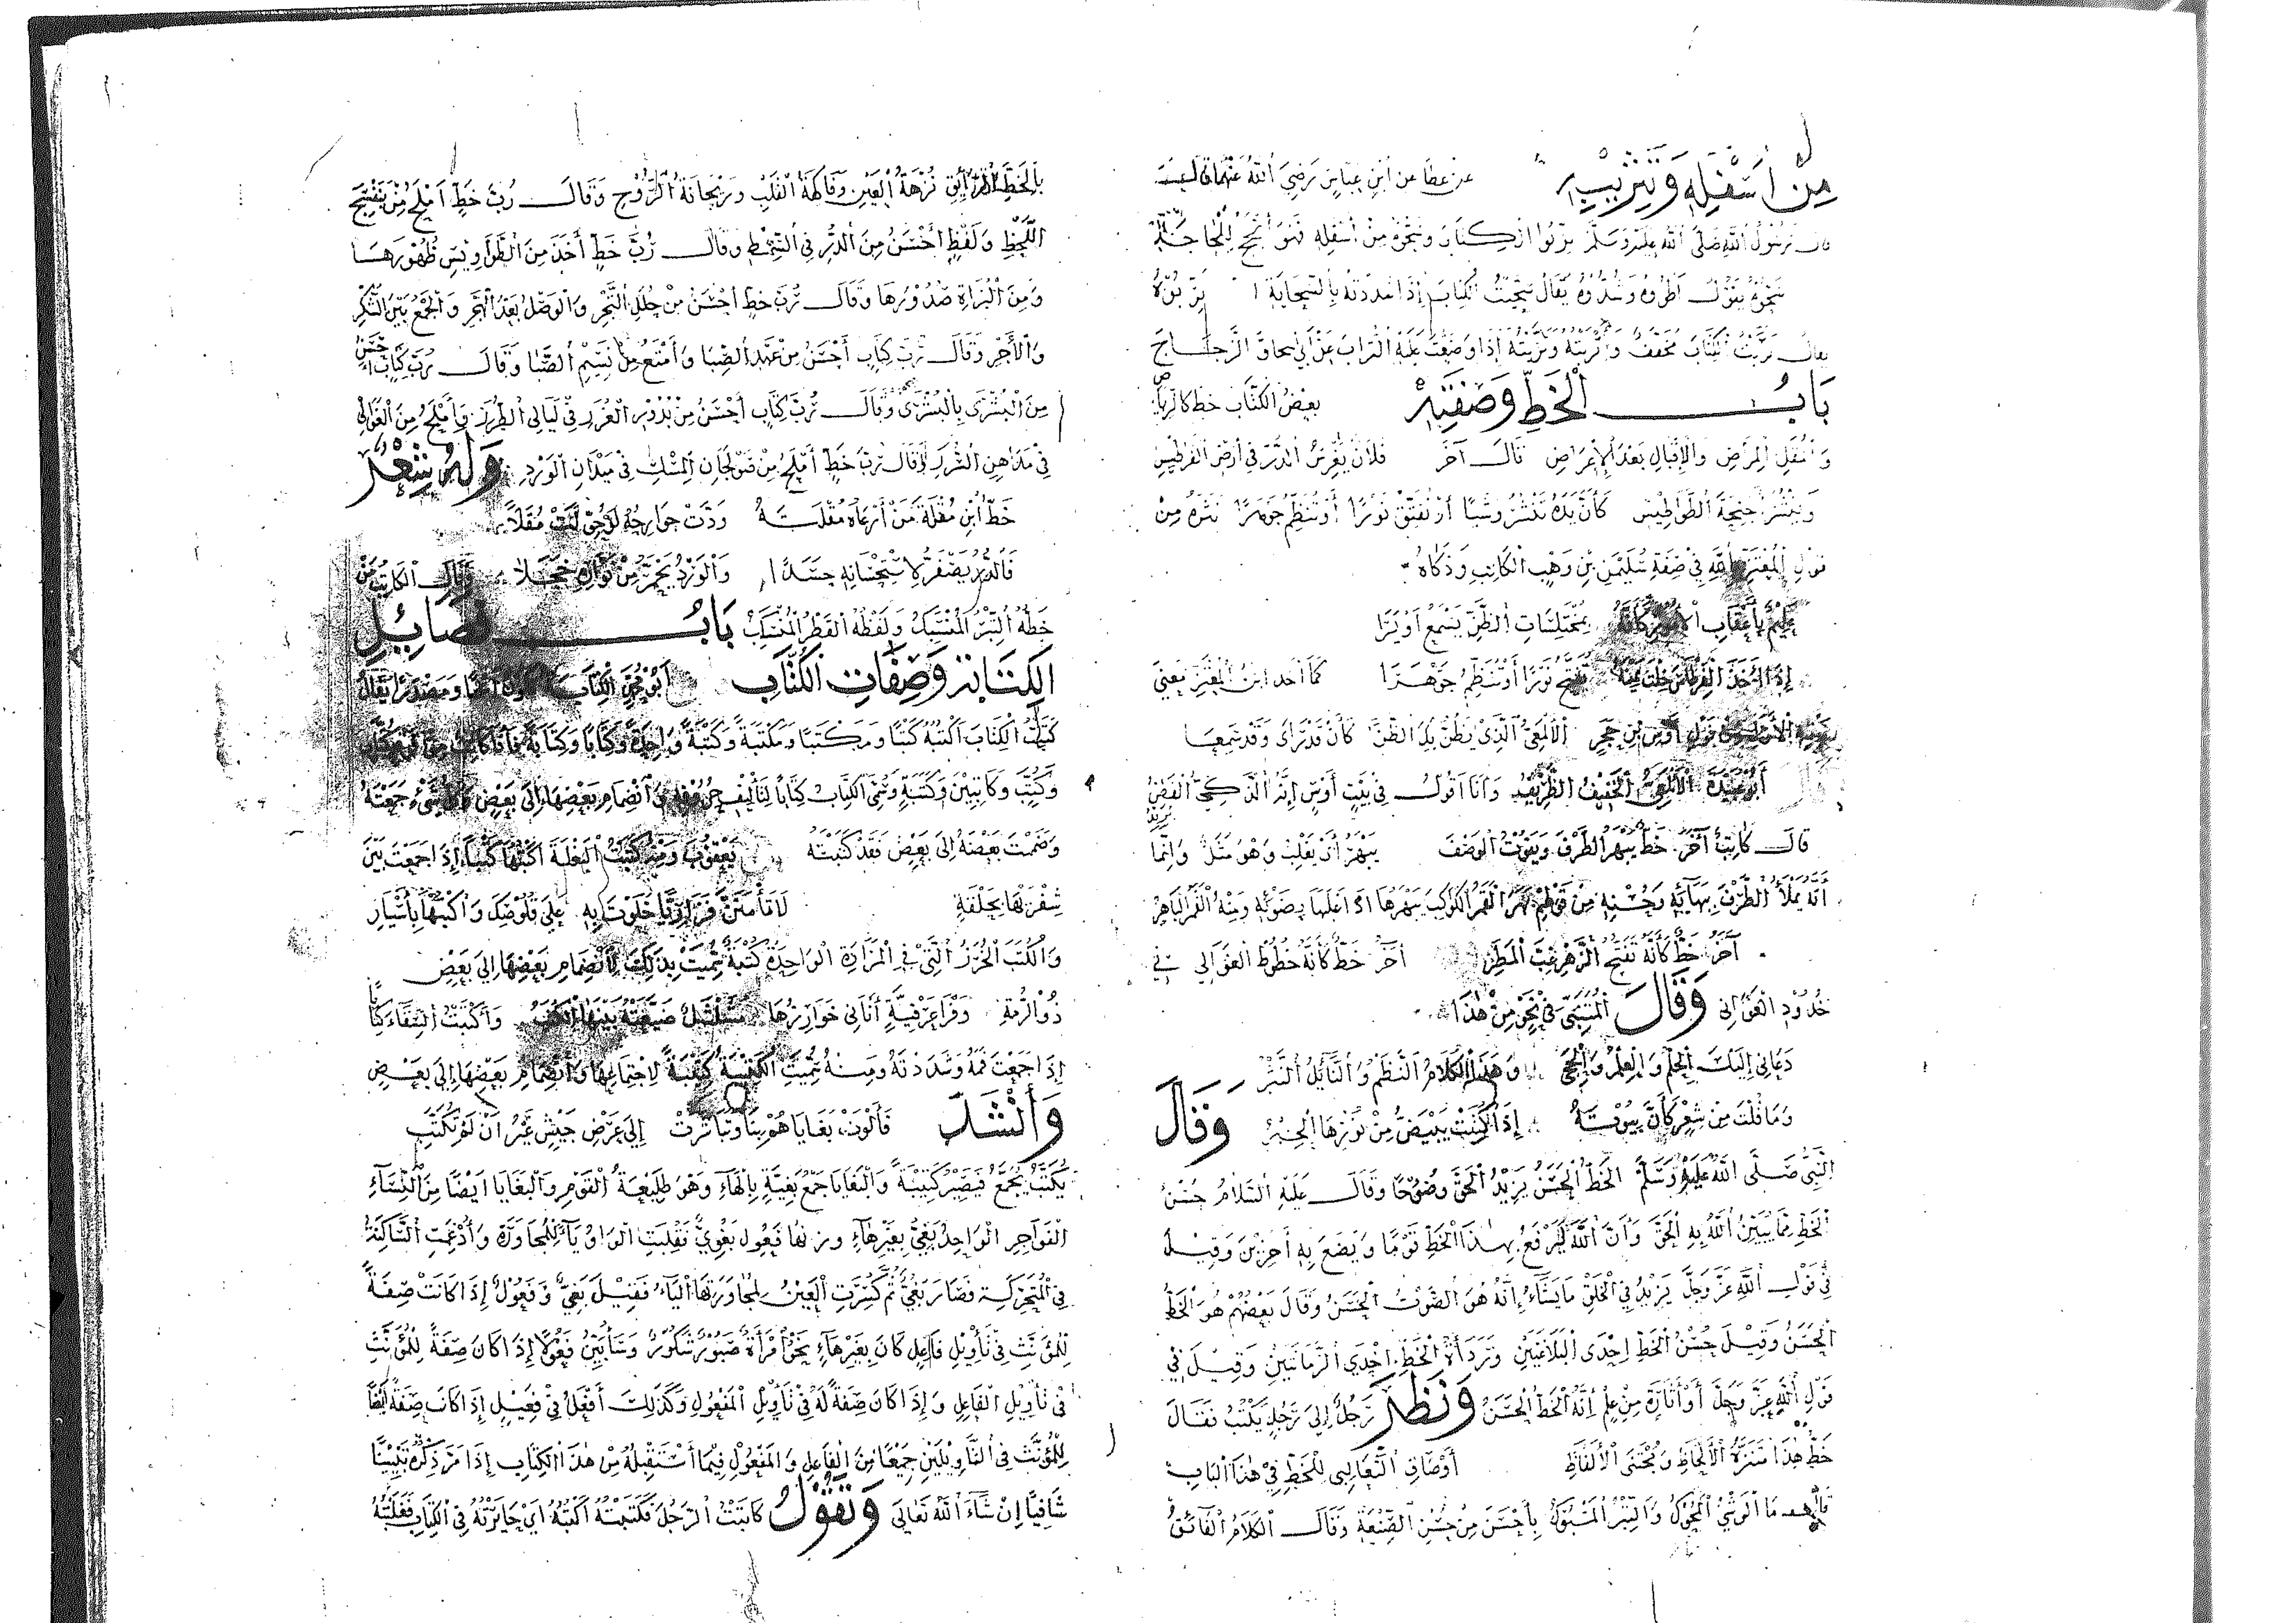 من أسفله وتتريبه عن عطا عن ابن عباس رضي الله عنهما قال
قال رسول الله صلى الله عليه وسلم تربوا الكتاب وسحوه من أسفله فهو أنجح للحاجة
سحوه يقول اطروه وشدوه يقال سحيت الكتاب إذا شددته بالسحاية تربوه
يقال تربت الكتاب مخفف وأتربته وتربته إذا وضعت عليه التراب عن أبي إسحاق الزجاج
باب الخط وصفته بعض الكتاب خط كالرياض
والمقل المراض والإقبال بعد الإعراض قال آخر فلان يغرس الدر في أرض القراطيس
وينشر أجنحة الطواويس كأن يده تنشر وشيا أو تفتق نورا أو تنظم جوهرا نثره من
قول المعتز بالله في صفة سليمن بن وهب الكاتب وذكاه
عليم بأعقاب الأمور كأنه بمختلسات الظن يسمع أو يرا
إذا أخذ القرطاس خلت يمينه تفتح نورا أو تنظم جوهرا كما أخذ ابن المعتز معنى
بيته الأول من قول أوس بن حجر الألمعي الذي يظن بك الظن كأن قد رأى وقد سمعا
أبو عبيدة الألمعي الخفيف الظريف وأنا أقول في بيت أوس إنه الذكي الفطن
قال كاتب آخر خط يبهر الطرف ويفوت الوصف يبهر أن يغلب وهو مثل وإنما يريد
أنه يملأ الطرف ببهائه وحسنه من قولهم بهر القمر الكواكب يبهرها إذا غلبها بضوئه ومنه القمر الباهر
آخر خط كأنه تفتح الزهر غب المطر آخر خط كأنه خطوط الغوالي في
خدود الغواني وقال المتنبي في نحو من هذا
دعاني إليك الحلم والعلم والحجى وهذا الكلام النظم والنائل النثر
وما قلت من شعر كأن بيوته إذا كتبت يبيض من نورها الحبر وقال
النبي صلى الله عليه وسلم الخط الحسن يزيد الحق وضوحا وقال عليه السلام حسن
الخط مما يبين الله به الحق وأن الله ليرفع بهذا الخط قوما ويضع به آخرين وقيل
في قول الله عز وجل يزيد في الخلق ما يشاء إنه هو الصوت الحسن وقال بعضهم هو الخط
الحسن وقيل حسن الخط إحدى البلاغتين ورداءة الخط إحدى الزمانتين وقيل في
قول الله عز وجل أو أثارة من علم إنه الخط الحسن ونظر رجل إلى رجل يكتب فقال
خط هذا متنزه الألحاظ ومجتنى الألفاظ أوصاف الثعالبي للخط في هذا الباب
قال ما الوشي المحوك والتبر المسبوك بأحسن من حسن الصنعة وقال الكلام الفائق
بالخط الرائق نزهة العين وفاكهة القلب وريحانة الروح وقال رب خط أملح من بنفسج
اللحظ ولفظ أحسن من الدر في السمط وقال رب خط أخذ من الطواويس ظهورها
ومن البزاة صدورها وقال رب خط أحسن من والوصل بعد الهجر والجمع بين الشكر
والأجر وقال رب كتاب أحسن من عهد الصبا وأمتع من نسيم الصبا وقال رب كتاب أحسن
من البشرى بالبشرى وقال رب كتاب أحسن من بدور الغرر في ليالي الطرر وأملح من الغوالي
في مداهن السرر وقال رب خط أملح من صولجان المسك في ميدان الورد وله شعر
خط ابن مقلة من أرعاه مقلته ودت جوارحه لو حولت مقلا
فالدر يصفر لاستحسانه حسدا والورد يحمر من نواره خجلا وقال الكاتب من
خطه التبر المنسبك ولفظه القطر المنسكب باب فضائل
الكتابة وصفات الكتاب
كتبت الكتاب أكتبه كتبا ومكتبا ومكتبة وكتبة واحدة وكتابا وكتابة
وكتب وكاتبين وكتبة وسمي الكتاب كتابا لتأليف حروفه في انضمام بعضها إلى بعض وكل شيء جمعته
وضممت بعضه إلى بعض فقد كتبته يعقوب ومنه كتبت البغلة أكتبها كتبا إذا جمعت بين
شفريها بحلقة لا تأمنن فزاريا خلوت به على قلوصك واكتبها بأسيار
والكتب الخرز التي في المزادة الواحدة كتبة سميت بذلك لانضمام بعضها إلى بعض
ذو الرمة وفراء غرفية أثأى خوارزها مشلشل ضيعته بينها الكتب وأكتبت السقاء كتبا
إذا جمعت فمه وشددته ومنه سميت الكتيبة كتيبة لاجتماعها وانضمام بعضها إلى بعض
وأنشد فألوت بغاياهم بنا وتباشرت إلى عرض جيش غير أن لم يكتب
يكتب يجمع فيصير كتيبة والبغايا جمع بغية بالهاء وهو طليعة القوم والبغايا أيضا من النساء
الفواجر الواحد بغي بغير هاء وزنها فعول بغوي نقلبت الواو ياء للمجاورة وأدغمت الساكنة
في المتحركة فصار بغي ثم كسرت الغين لمجاورتها الياء فقيل بغي وفعول إذا كانت صفة
للمؤنث في تأويل فاعل كان بغير هاء نحو امرأة صبور شكور وسأبين فعولا إذا كان صفة للمؤنث
في تأويل الفاعل وإذا كان صفة له في تأويل المفعول وكذلك أفعل في فعيل إذا كانت صفة أيضا
للمؤنث في التأويلين جميعا من الفاعل والمفعول فيما أستقبله من هذا الكتاب إذا مر ذكره تبيينا
شافيا إن شاء الله تعالى وتقول كاتبت الرجل فكتبته أكتبه أي جاريته في الكتاب فغلبته